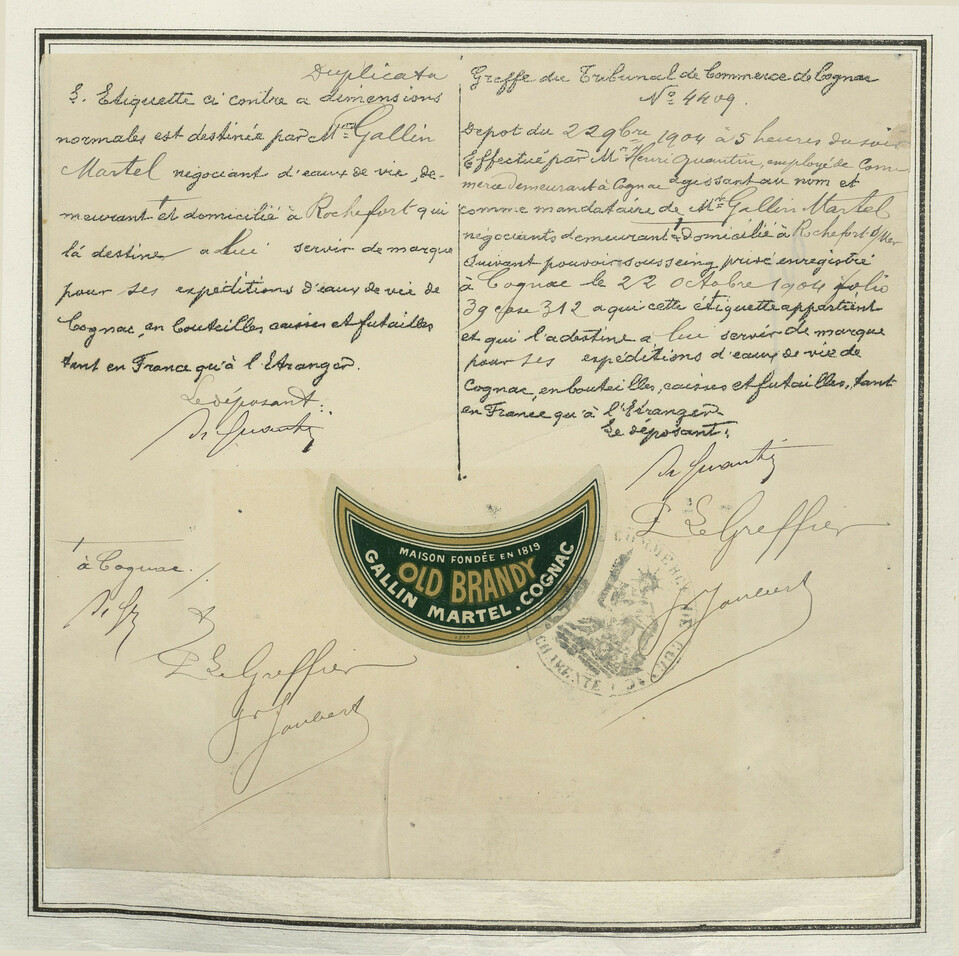 Duplicata
L. Etiquette ci contre a dimensions
normales est destinée par Mr Gallin
Martel négociant d'eaux de vie, de-
meurant et domicilié à Rochefort qui
là destine a lui servir de marque
pour ses expéditions d'eaux de vie de
Cognac, en bouteilles caisses et futailles
tant en France qu'à l'Etranger.
Le déposant:
Hr Quantin
à Cognac.
P Le Greffier
Joubert
Greffe du Tribunal de Commerce de Cognac
No 4409.
Depot du 22 9bre 1904 à 5 heures du soir
Effectué par Mr Henri Quantin, employé de Com
merce demeurant à Cognac agissant au nom et
comme mandataire de Mr Gallin Martel
négociants demeurant & domicilié à Rochefort s/Mer
suivant pouvoir sous seing privé enregistré
à Cognac le 22 octobre 1904 folio
39 case 312 a qui cette étiquette appartient
et qui l'a destine a lui servir de marque
pour ses expéditions d'eaux de vie de
Cognac, en bouteilles, caisses et futailles, tant
en France qu'à l'Etranger
Le déposant:
Hr Quantin
P Le Greffier
Joubert
MAISON FONDÉE EN 1819
OLD BRANDY
GALLIN MARTEL. COGNAC
COMMERCE DE
CHARENTE